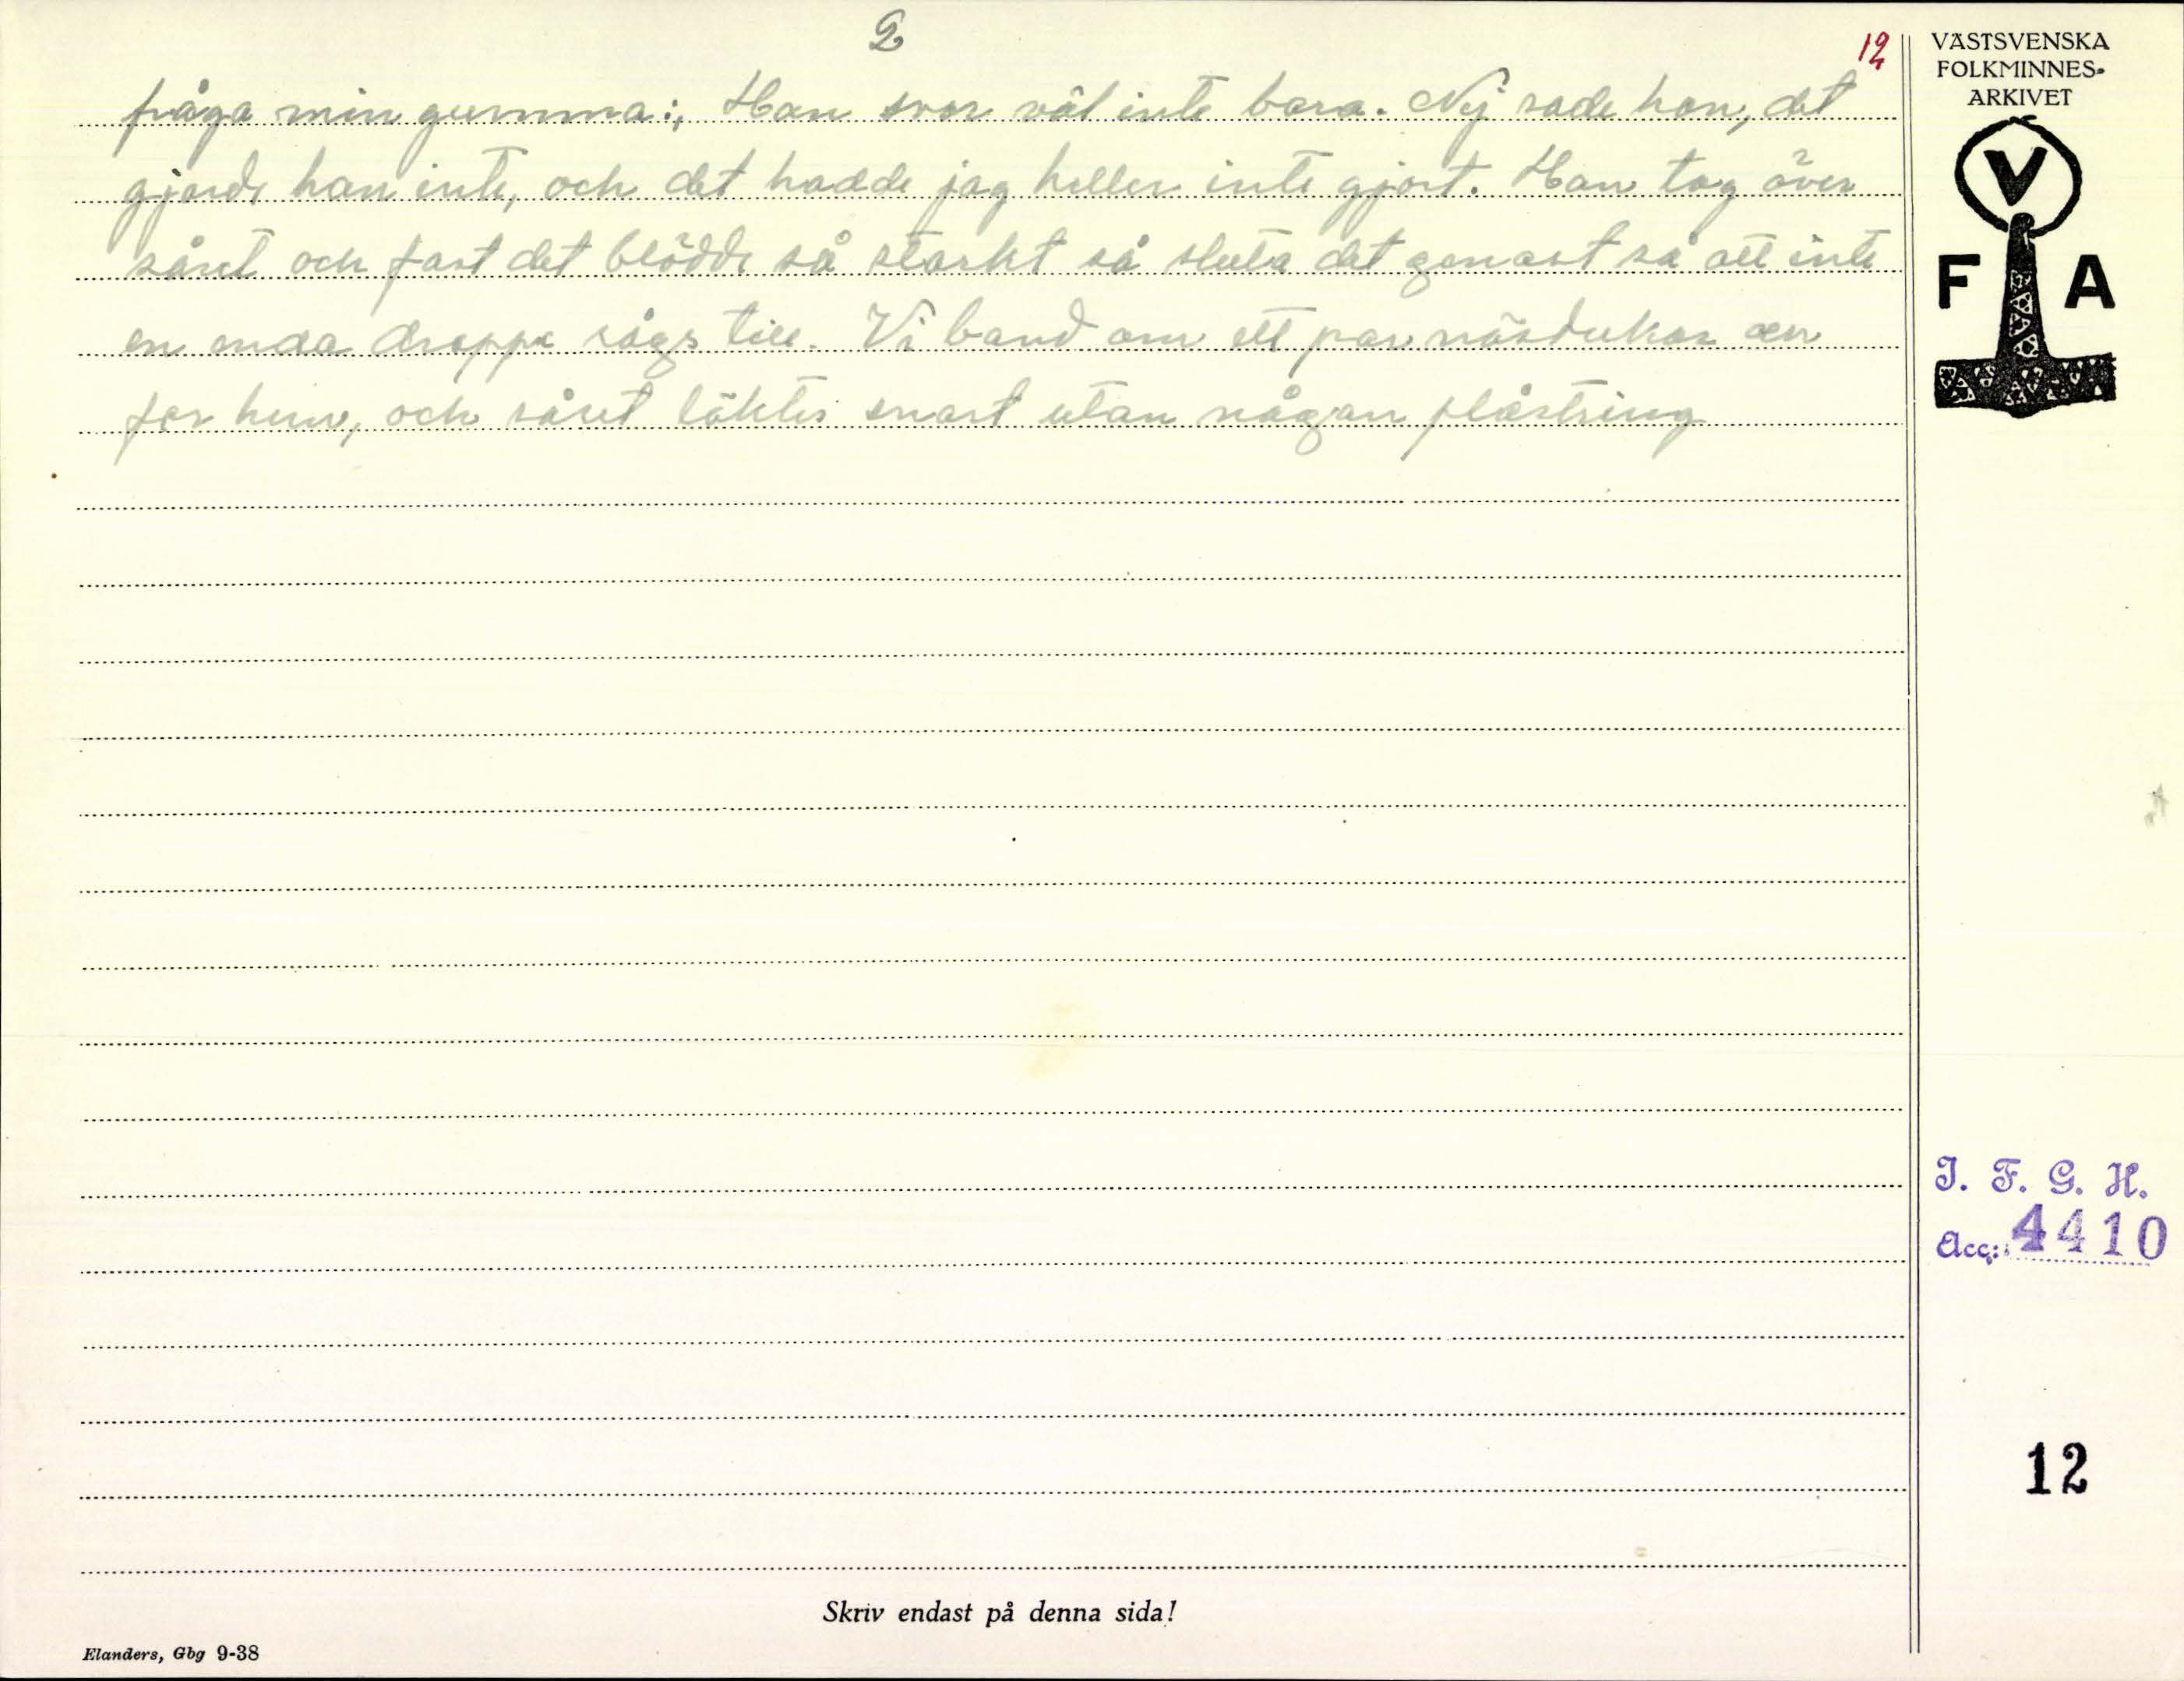 2
12
fråga min gumma:, Han svor väl inte bara. Nej sade hon, det
gjorde han inte, och det hadde jag heller inte gjort. Han tog över
såret och fast det blödde så starkt så sluta det genast så att inte
en enda droppe sågs till. Vi band om ett par näsdukar
for hem, och såret läktes snart utan någon plåstring
VÄSTSVENSKA
FOLKMINNES-
ARKIVET
V
F A
I. F. G. H.
Acc: 4410
12
Skriv endast på denna sida!
Elanders, Gbg 9-38